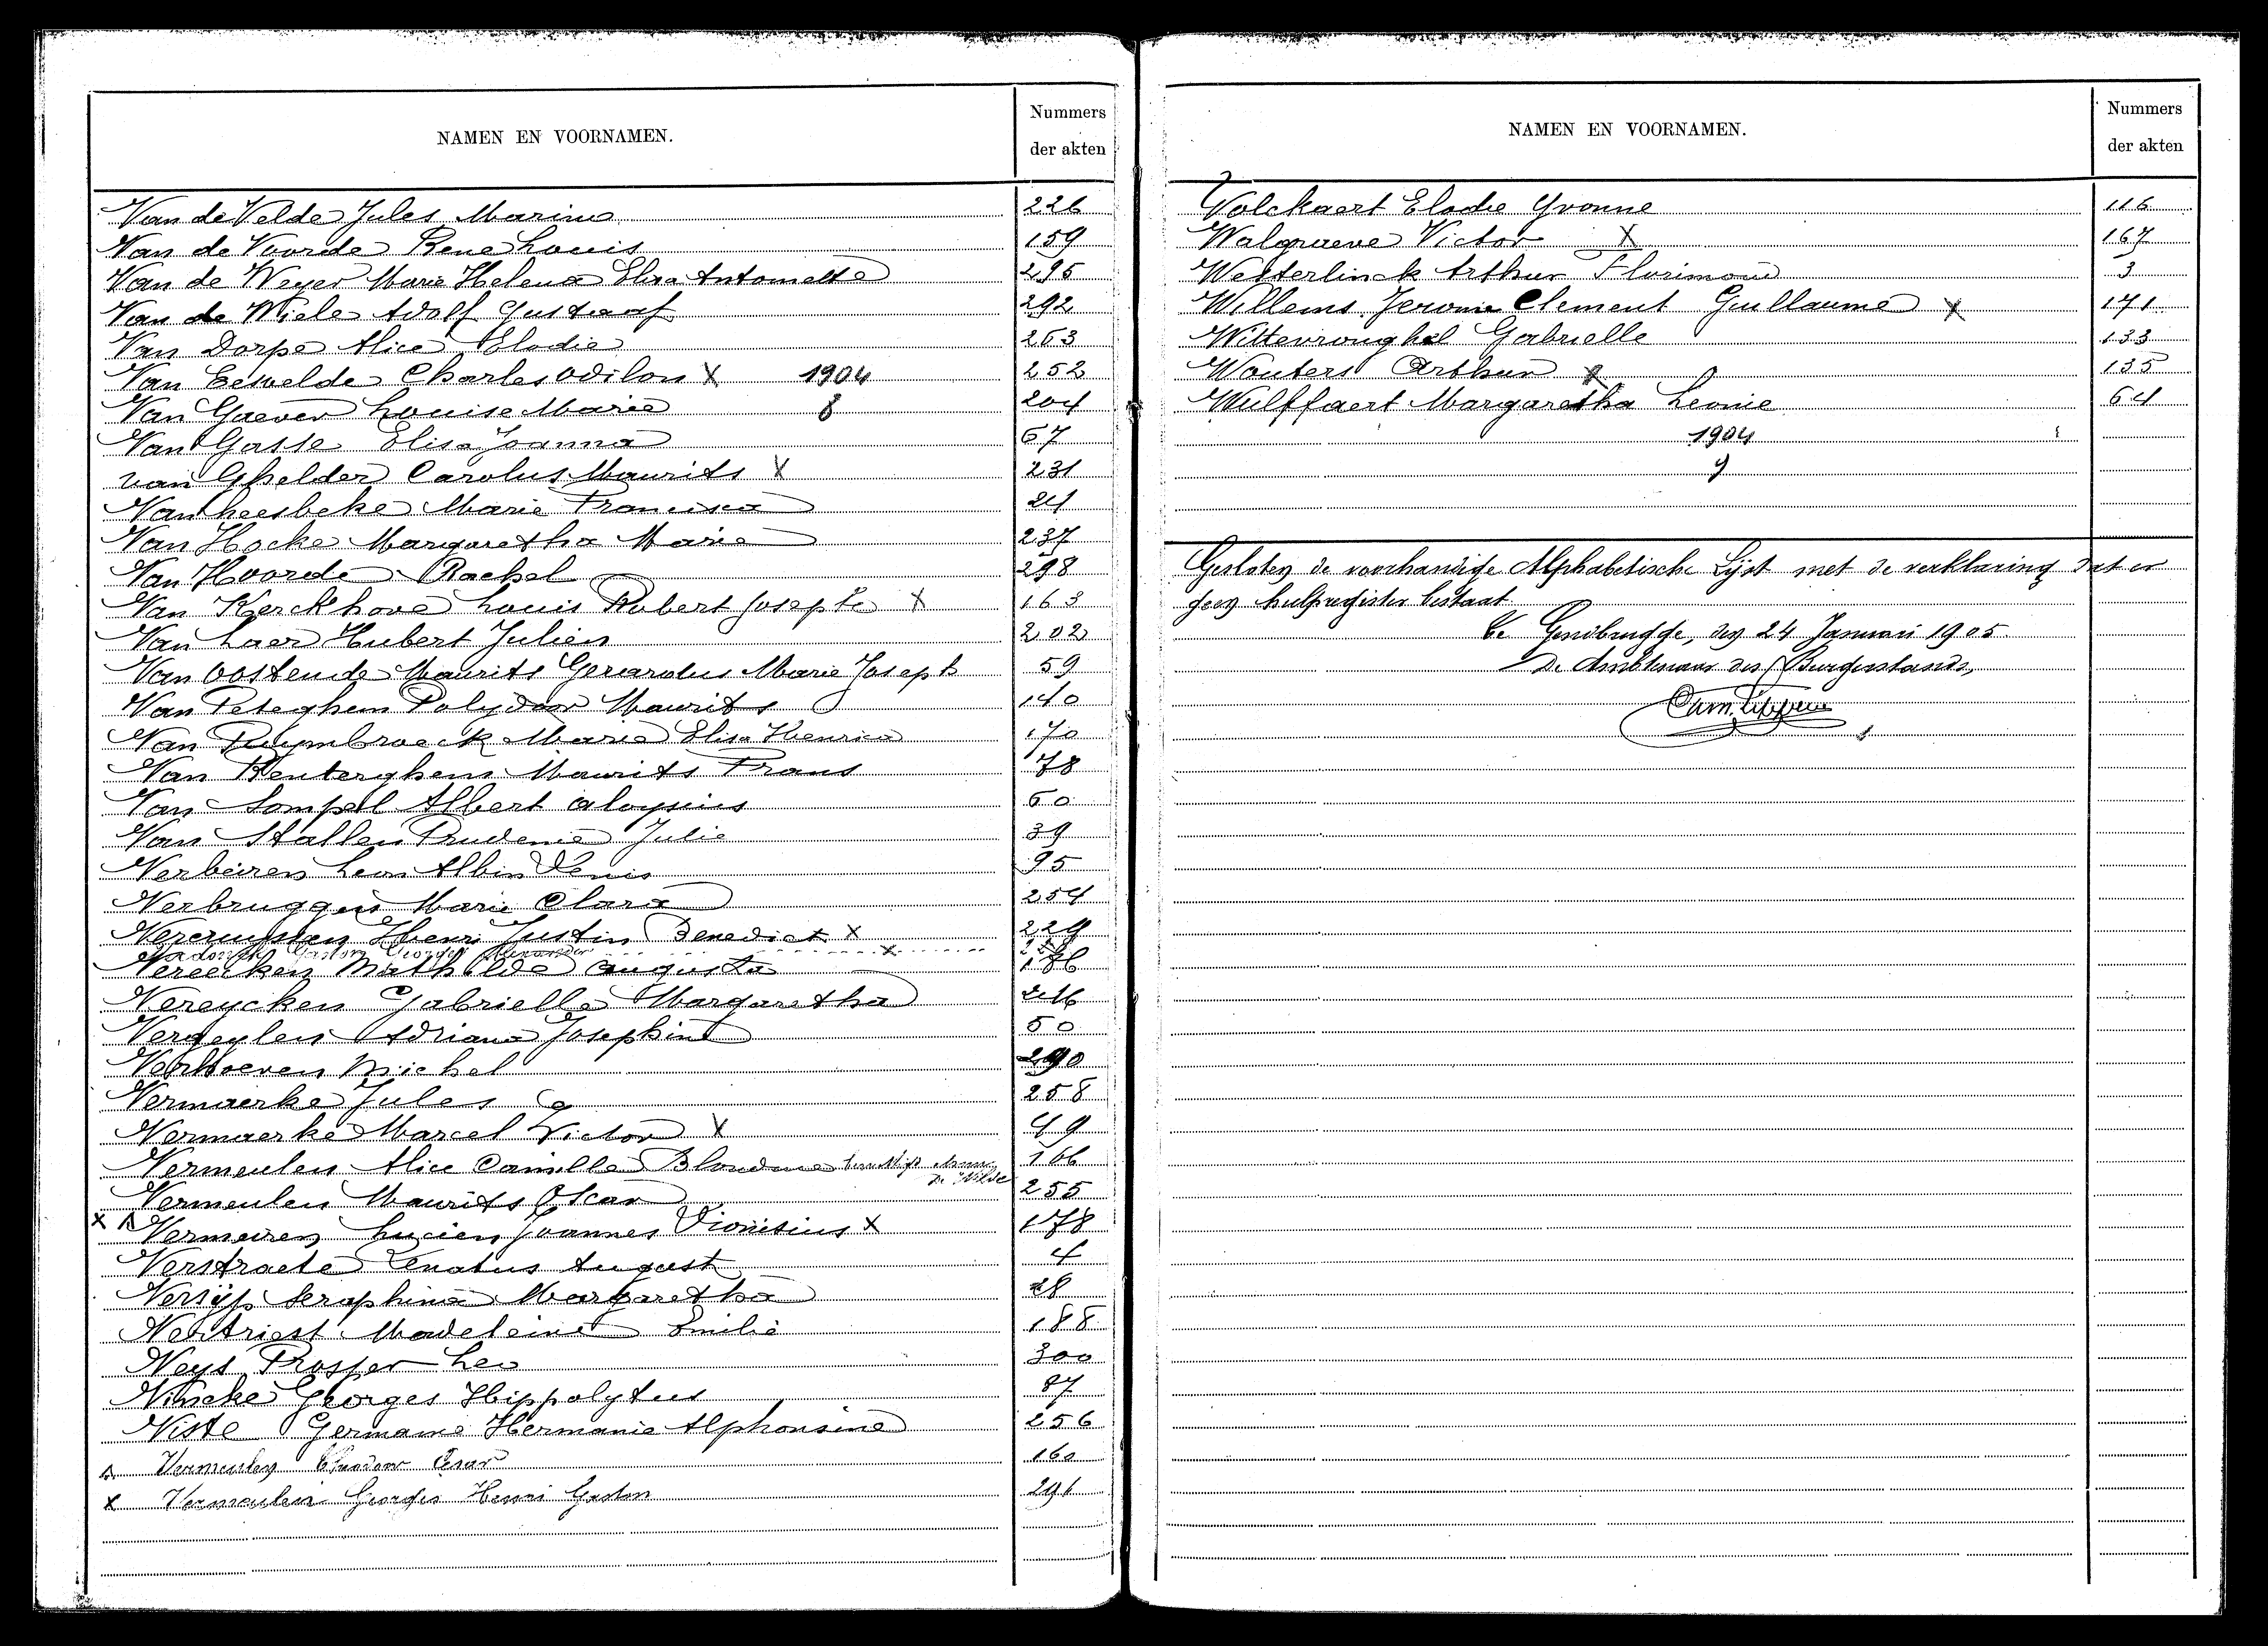 NAMEN EN VOORNAMEN. Nummers der akten
Van de Velde Jules Marin 226
Van de Voorde Rene Louis 159
Van de Weyer Marie Helena Elisa Antoinette 295
Van de Wiele Adolf Gustaaf 292
Van Dorpe Alice Elodie 263
Van Eesvelde Charles Odilon X 1904 252
Van Gaever Louise Marie 8 204
Van Gasse Elisa Joanna 67
van Ghelder Carolus Maurits X 231
Van heesbeke Marie Francisca 24
Van Hocke Margaretha Marie 237
Van Hoorde Rachel 298
Van Kerckhove Louis Robert Joseph X 163
Van Laer Hubert Julien 202
Van Oostende Maurits Gerardus Marie Joseph 59
Van Peteghem Polydoor Maurits 140
Van Puymbroeck Maria Elisa Henrica 170
Van Renterghem Maurits Frans 78
Van Sompel Albert Aloysius 60
Van Stallen Prudence Julie 39
Verbeiren Leon Albin Denis 95
Verbruggen Marie Clara 254
Vercruyssen Henri Justin Benedict X 229
Gaston Georges Alexander X
Vereecken Mathilde Augusta 186
Vereycken Gabrielle Margaretha 246
Vergeylen Adriana Josephine 50
Verhoeven Michel 290
Vermaerke Jules 258
Vermaerke Marcel Victor X 49
Vermeulen Alice Camilla Blondine 166
De Wilde
Vermeulen Maurits Oscar 255
X Vermeiren Lucien Joannes Dionisius X 178
Verstraete Renatus August 4
Versijp Seraphina Margaretha 28
Vertriest Madeleine Emilie 188
Veys Prosper Leo 300
Vincke Georges Hippolytus 87
Viste Germaine Hermanie Alphonsine 256
Vermeulen Cesar 160
X Vermeulen Georges Henri Gaston 291
NAMEN EN VOORNAMEN. Nummers der akten
Volckaert Elodie Yvonne 116
Walgraeve Victor X 167
Westerlinck Arthur Florimond 3
Willems Jerome Clement Guillaume X 171
Wittevronghel Gabrielle 133
Wouters Arthur X 135
Wulffaert Margaretha Leonie 64
1904
9
Gesloten de voorhandige Alphabetische Lijst met de verklaring dat er
geen hulpregister bestaat
Te Gendbrugge, den 24 Januari 1905.
De Ambtenaar des Burgerstands,